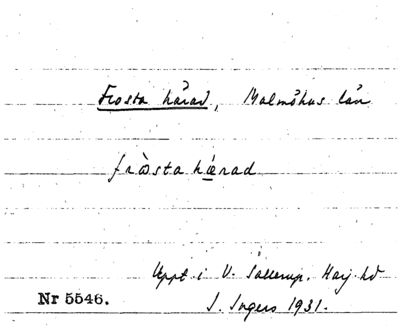 Frosta härad, Malmöhus län
fròsta hǽrad
Uppt. i V. Sallerup. Harj. hd
Nr 5546.
I. Ingers 1931.